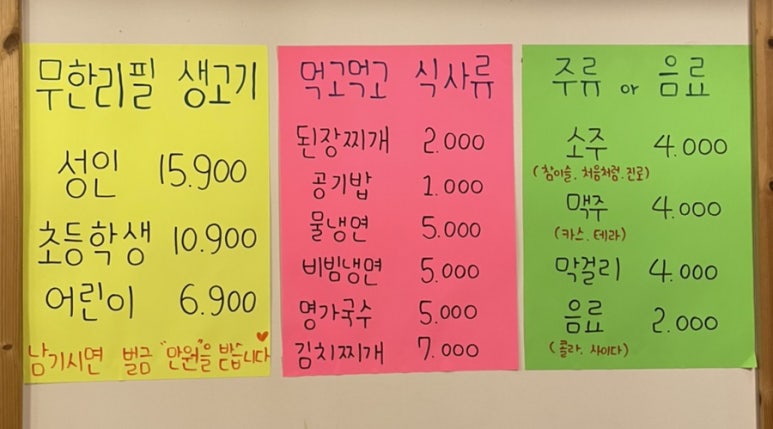 무한리필 생고기
성인 15.900
초등학생 10.900
어린이 6.900
남기시면 벌금 "만원"을 받습니다
먹고먹고 식사류
된장찌개 2.000
공기밥 1.000
물냉면 5.000
비빔냉면 5.000
명가국수 5.000
김치찌개 7.000
주류 or 음료
소주 4.000
(참이슬. 처음처럼. 진로)
맥주 4.000
(카스. 테라)
막걸리 4.000
음료 2.000
(콜라. 사이다)